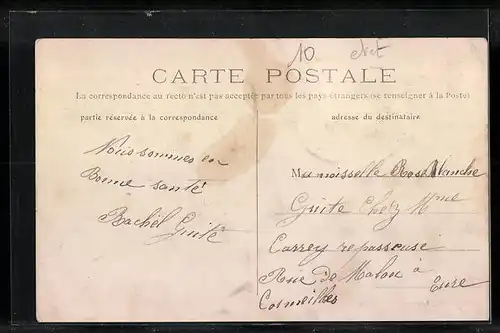 10 net
CARTE POSTALE
La correspondance au recto n'est pas acceptée par tous les pays étrangers (se renseigner à la Poste)
partie réservée à la correspondance
adresse du destinataire
Nous sommes en
Bonne santé
Rachel Guite
Mamoisselle Rose Blanche
Guite Chéz Mme
Carrey repasseuse
Rue De Malou à
Cormeilles Eure